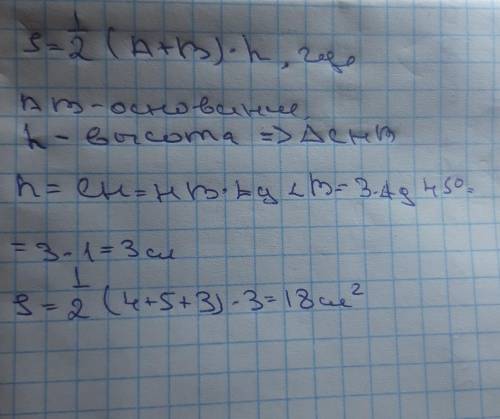 S = 1/2 (A+B)·h, где
AB - основание,
h - высота => ΔCHB
h = CH = HB·tg∠B = 3·tg 45°=
= 3·1 = 3 см
S = 1/2 (4+5+3)·3 = 18 см²